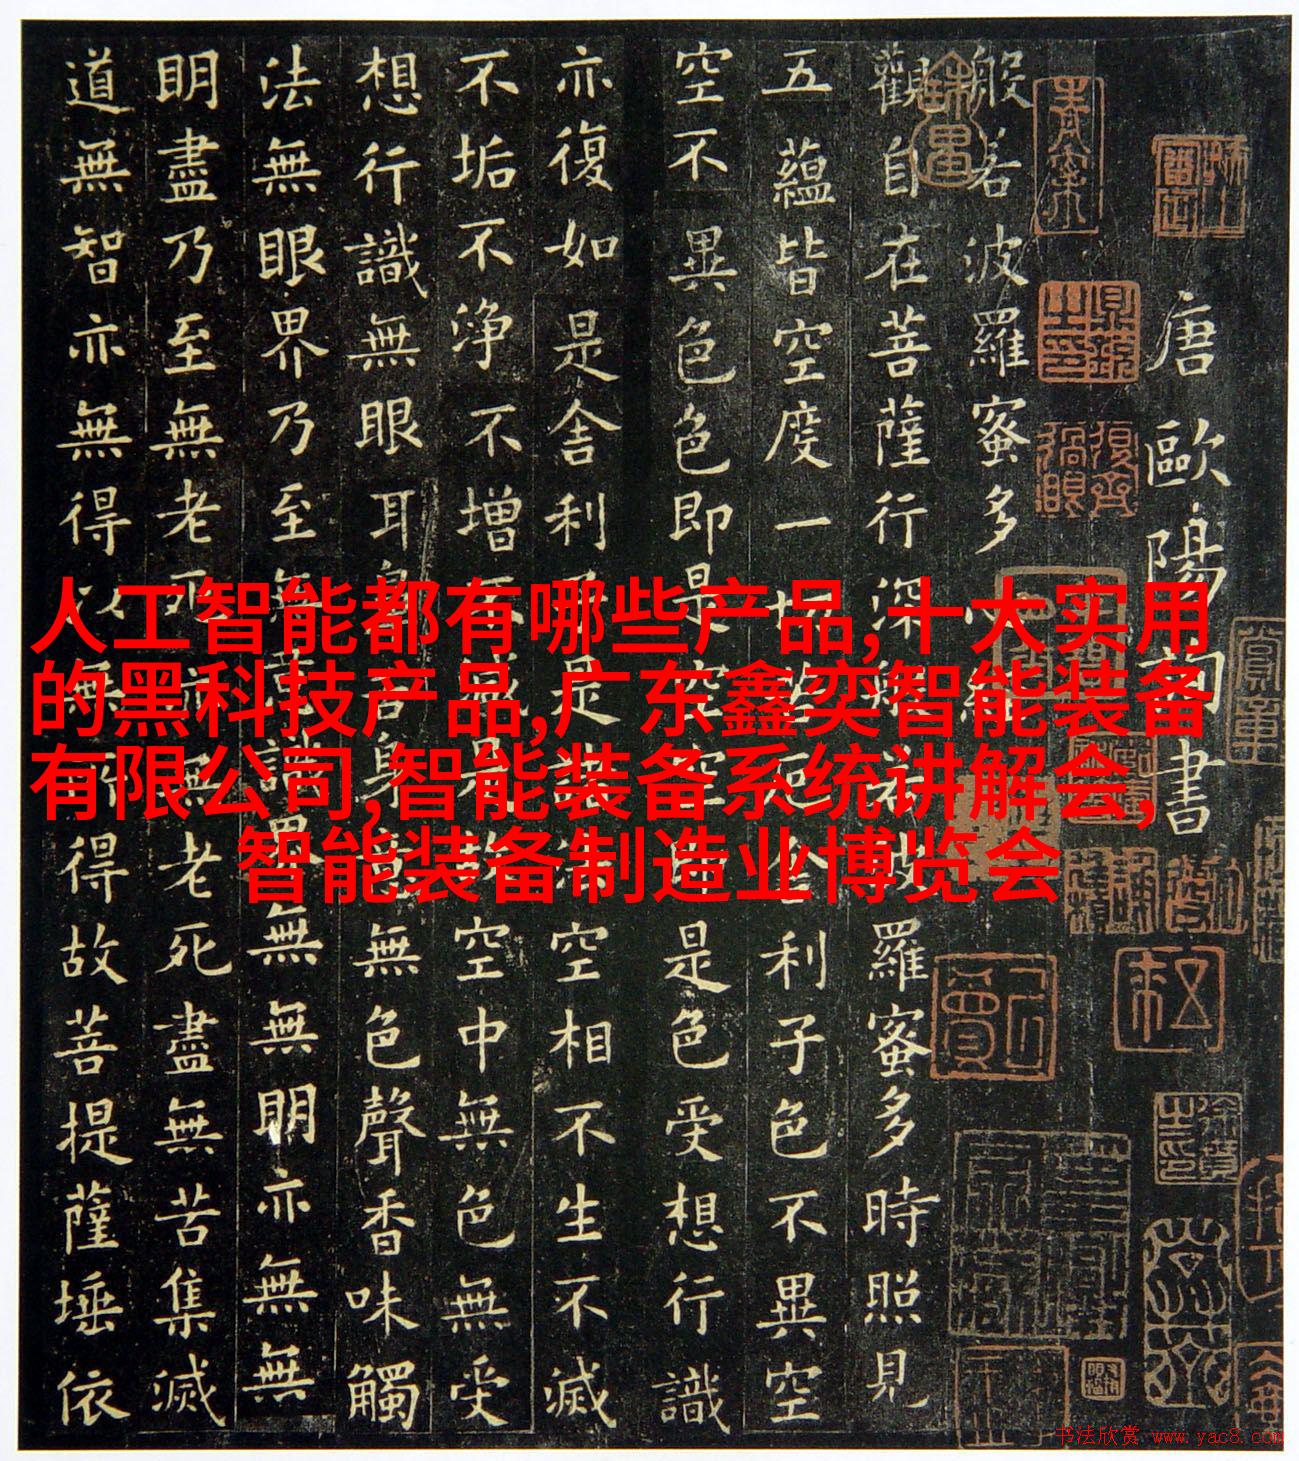 人工智能都有哪些产品,十大实用
的黑科技产品,广东鑫奕智能装备
有限公司,智能装备系统讲解会,
智能装备制造业博览会
唐歐陽詢書
般若波羅蜜多心經
觀自在菩薩行深般若波羅蜜多時照見
五蘊皆空度一切苦厄舍利子色不異空
空不異色色即是空空即是色受想行識
亦復如是舍利子是諸法空相不生不滅
不垢不淨不增不減是故空中無色無受
想行識無眼耳鼻舌身意無色聲香味觸
法無眼界乃至無意識界無無明亦無無
明盡乃至無老死亦無老死盡無苦集滅
道無智亦無得以無所得故菩提薩埵依
书法欣赏 www.yac8.com